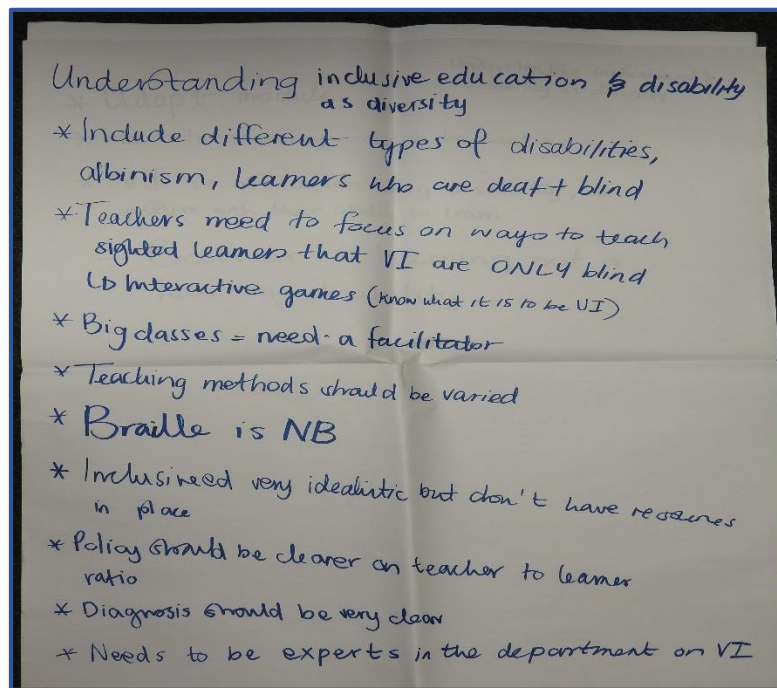 Understanding inclusive education & disability
as diversity
* Include different types of disabilities,
albinism, learners who are deaf + blind
* Teachers need to focus on ways to teach
sighted learners that VI are ONLY blind
↳ Interactive games (know what it is to be VI)
* Big classes = need a facilitator
* Teaching methods should be varied
* Braille is NB
* Inclusineed very idealistic but don't have resources
in place
* Policy should be clearer on teacher to learner
ratio
* Diagnosis should be very clear
* Needs to be experts in the department on VI